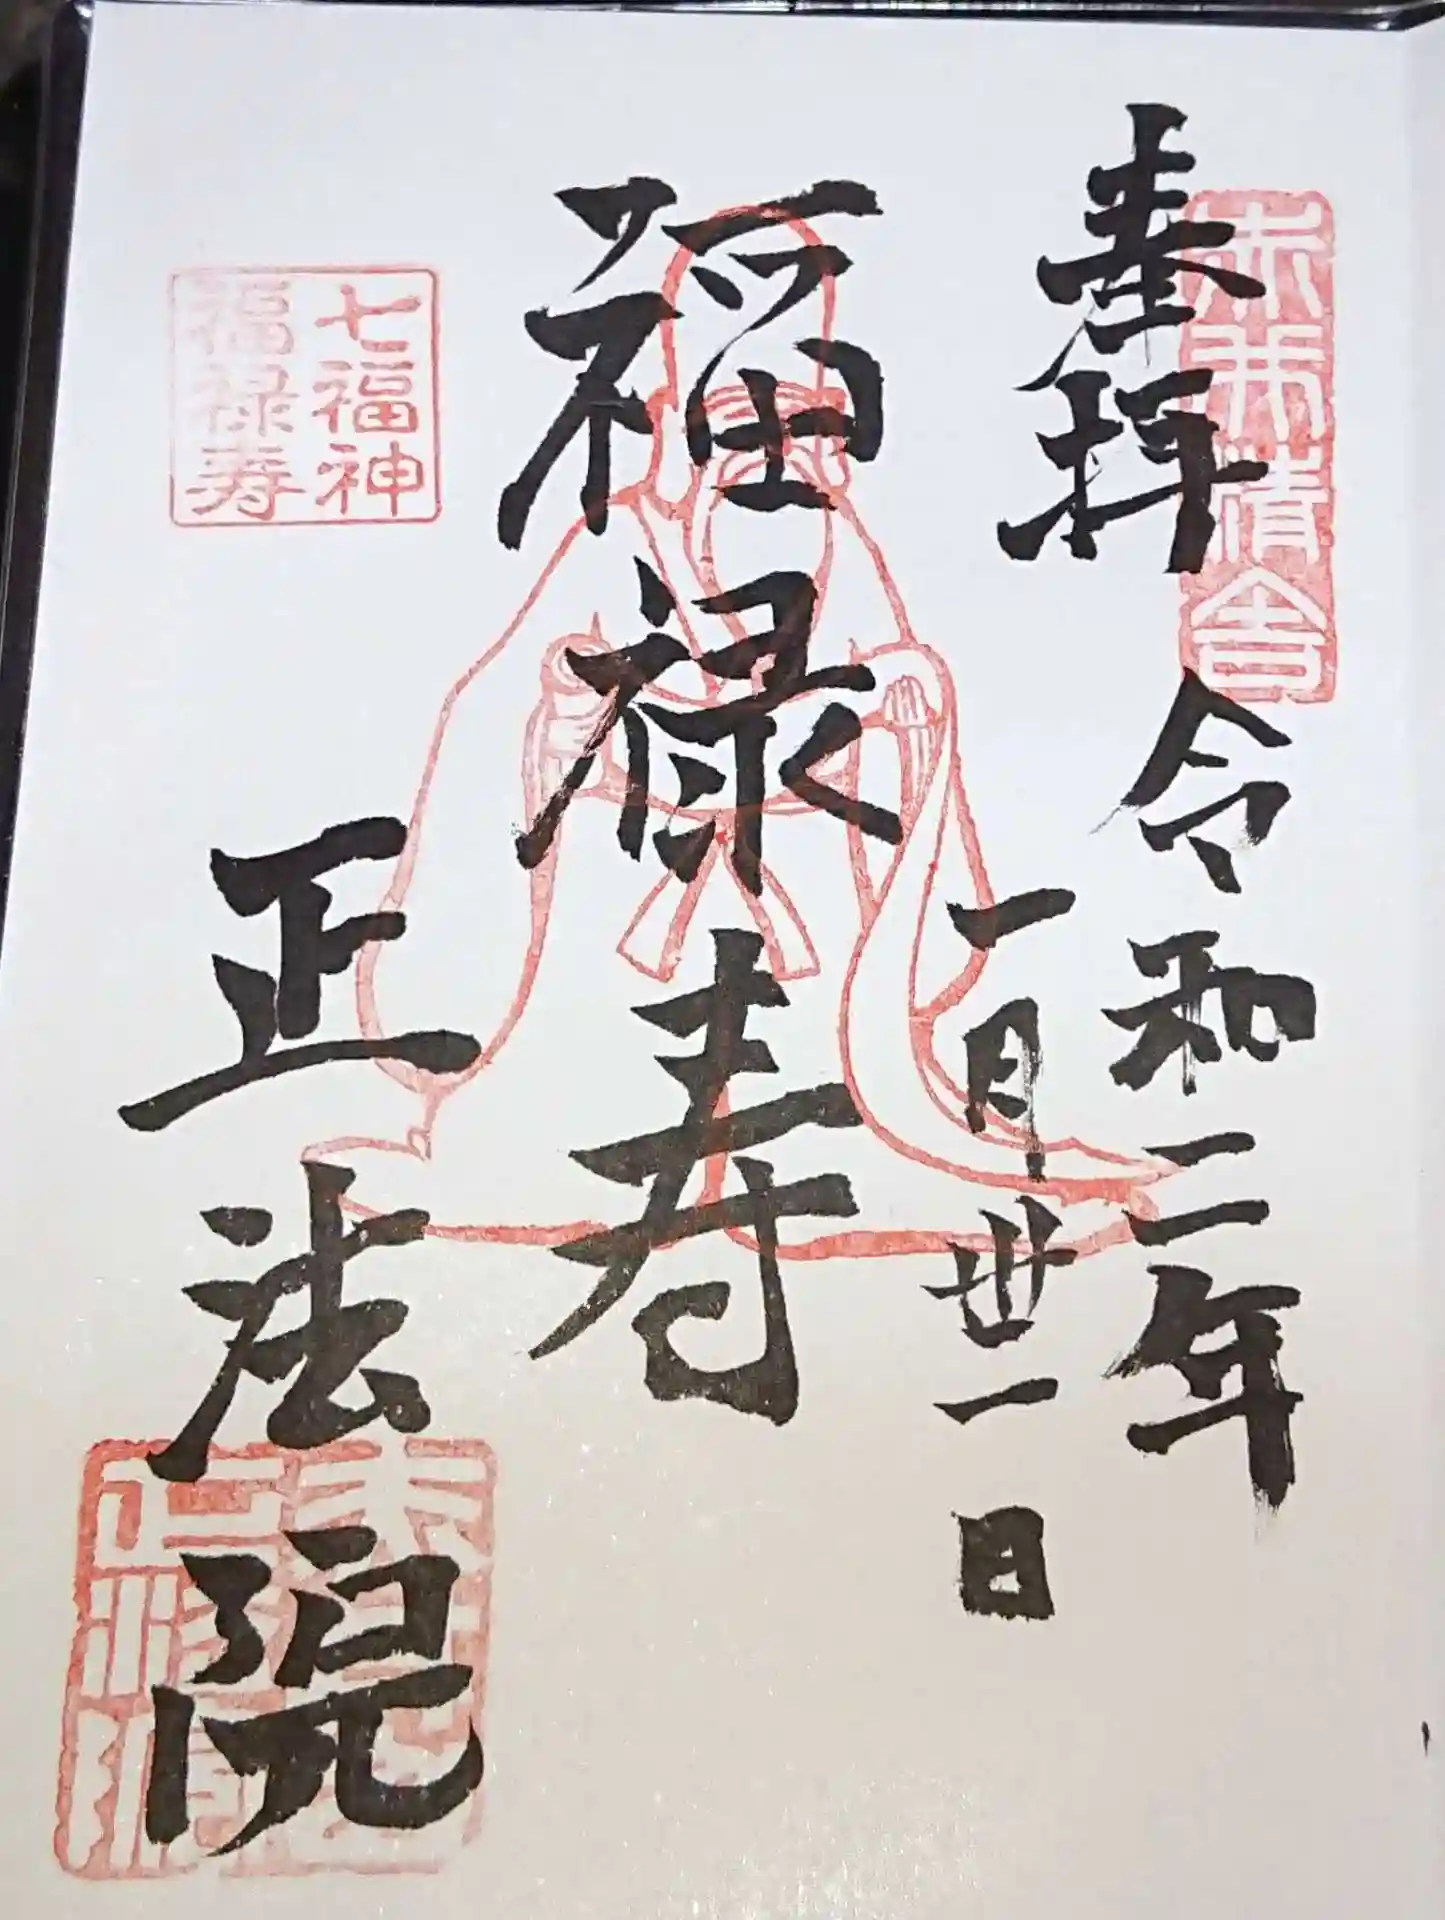 奉拝
令和二年
一月廿一日
福禄寿
七福神
福禄寿
正法院